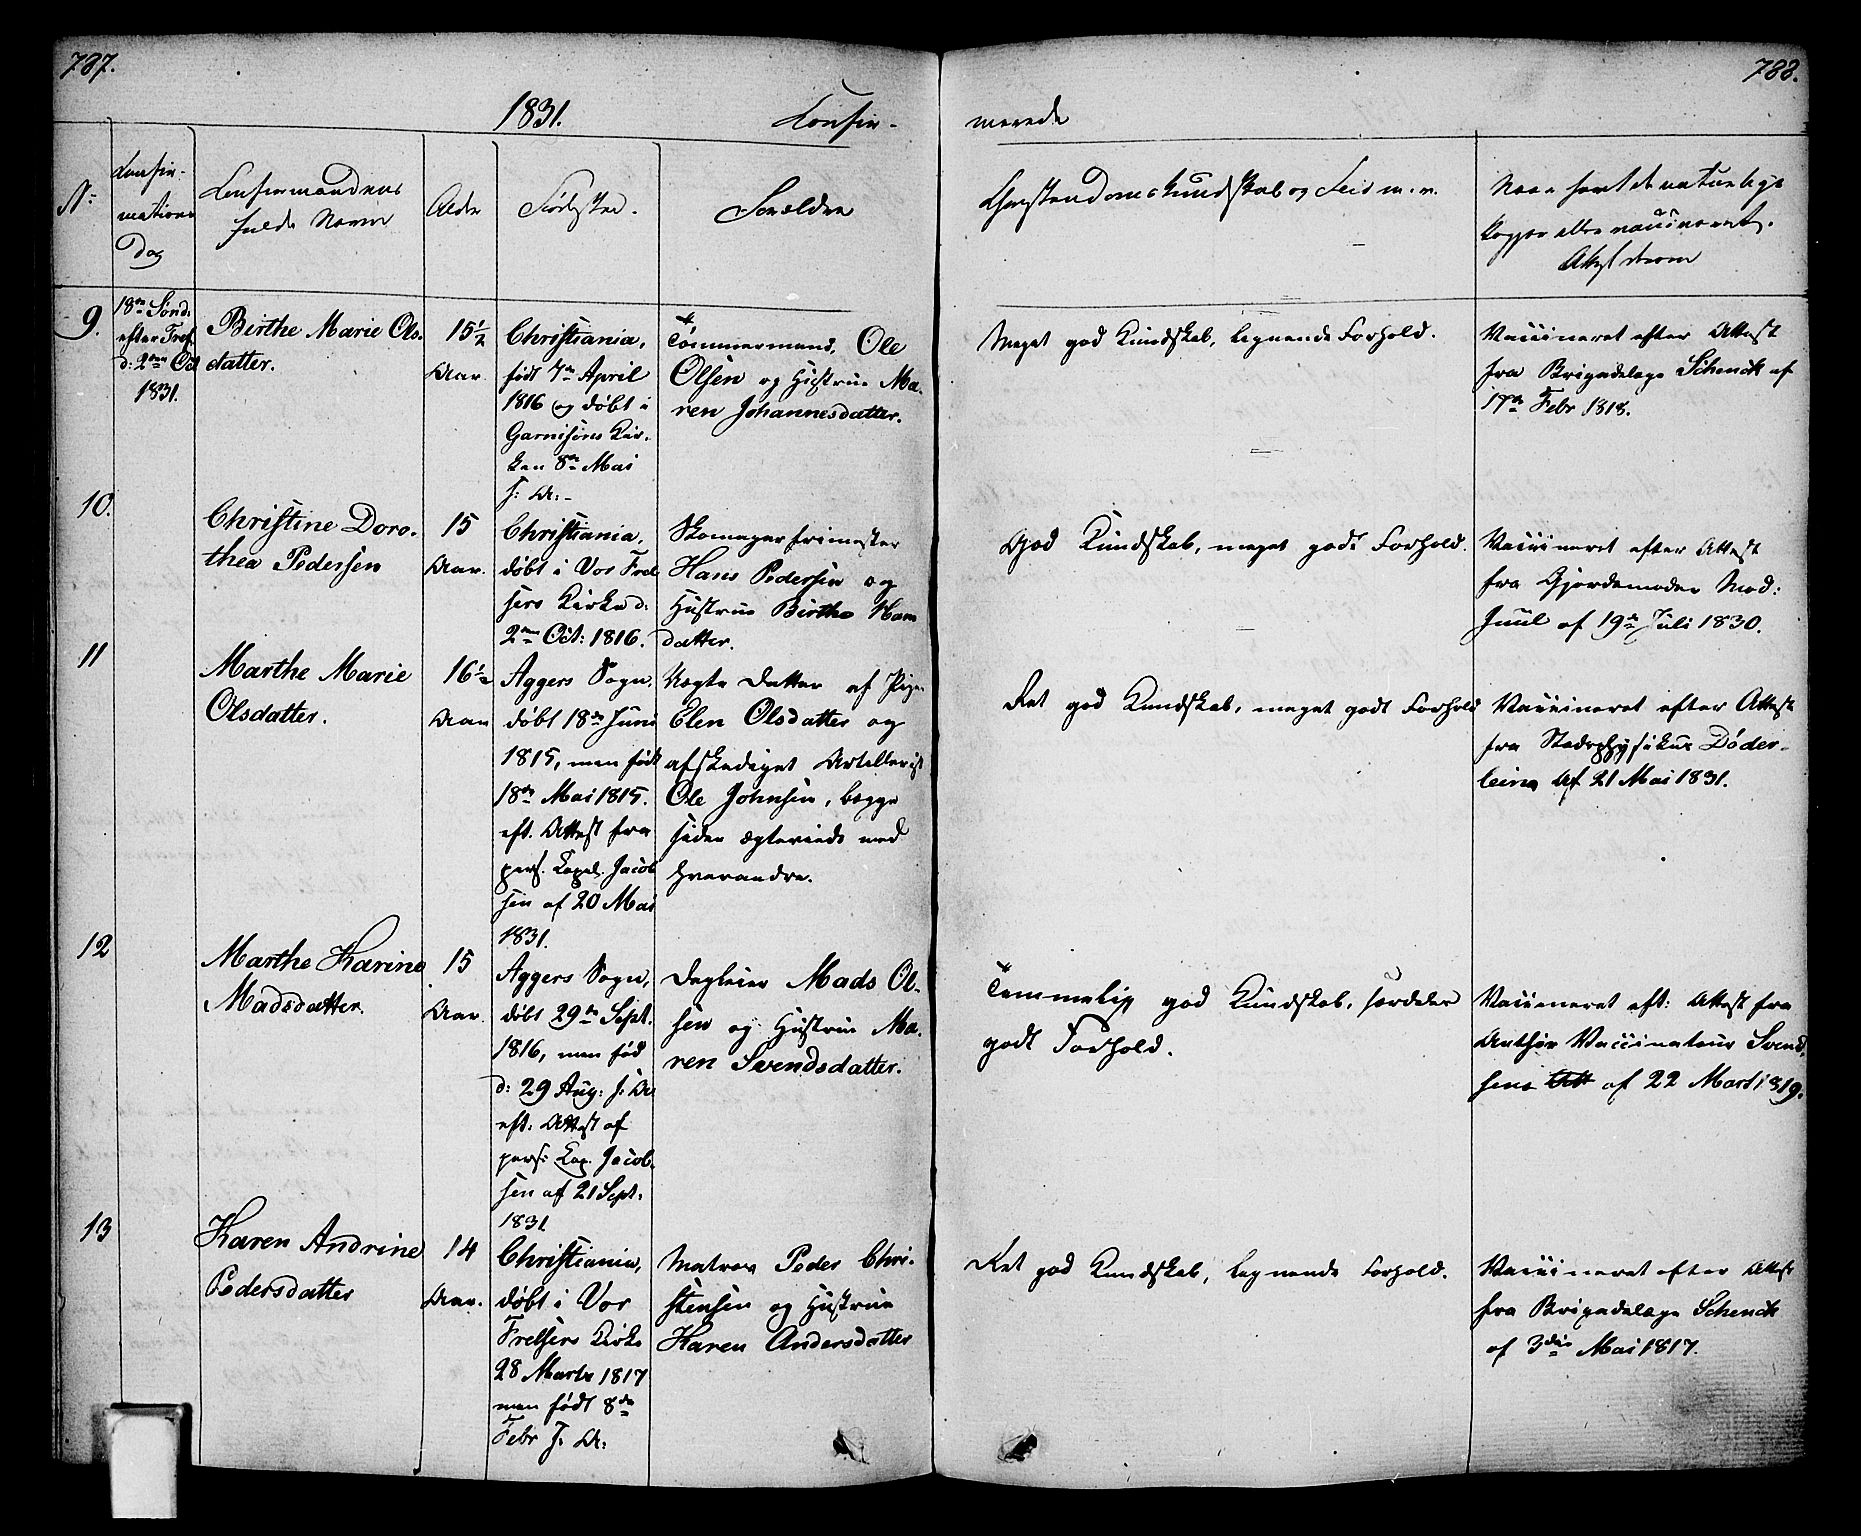 787.
788.
1831. Confir-
merede
No
Confir-
mations
Dag
Confirmandens
fulde Navn
Alder
Födested.
Forældre
Christendomskundskab og Flid m. v.
Naar havt de naturlige
Kopper eller vaccineret,
Attest derom
9.
18de Sönd:
efter Tref.
d: 2den Oct
1831.
Birthe Marie Ols-
datter.
15½
Aar
Christiania,
födt 7de April
1816 og döbt i
Garnisons Kir-
ken 8de Mai
s: A:
Tömmermand, Ole
Olsen og Hustrue Ma-
ren Johannesdatter.
Meget god Kundskab, lignende Forhold.
Vaccineret efter Attest
fra Brigadelæge Schenck af
17de Febr 1818.
10.
Christine Doro-
thea Pedersen
15
Aar.
Christiania,
döbt i Vor Frel
sers Kirke d:
2den Oct: 1816.
Skomager frimester
Hans Pedersen og
Hustrue Birthe Ham
datter.
God Kundskab, meget godt Forhold.
Vaccineret efter Attest
fra Gjordemoder Mad:
Juul af 19de Juli 1830.
11
Marthe Marie
Olsdatter.
16½
Aar
Aggers Sogn,
döbt 18de Juni
1815, men födt
18de Mai 1815.
eft. Attest fra
pers. Capel. Jacob
sen af 20 Mai
1831.
Uægte Datter af Pige
Elen Olsdatter og
afskediget Artillerist
Ole Johnsen, begge
siden ægteviede med
hverandre.
Ret god Kundskab, meget godt Forhold
Vaccineret efter Attest
fra Stadsphysikus Döder-
lein af 21 Mai 1831.
12
Marthe Karine
Madsdatter.
15
Aar.
Aggers Sogn,
döbt 29de Sept.
1816, men föd
d: 29 Aug: s: A:
eft: Attest af
pers: Cap. Jacob-
sen af 21 Sept:
1831
Dagleier Mads Ol-
sen og Hustrue Ma-
ren Svendsdatter.
Temmelig god Kundskab, særdeles
godt Forhold.
Vaccineret eft: Attest fra
Vaccinateur Svend
sen af 22 Marts 1819.
13
Karen Andrine
Pedersdatter
14
Aar.
Christiania,
döbt i Vor
Frelsers Kirke
28 Marts 1817
men födt 8de
Febr s: A:
Matros Peder Chri-
stensen og Hustrue
Karen Andersdatter
Ret god Kundskab, lignende Forhold.
Vaccineret efter Attest
fra Brigadelæge Schenck
af 3die Mai 1817.